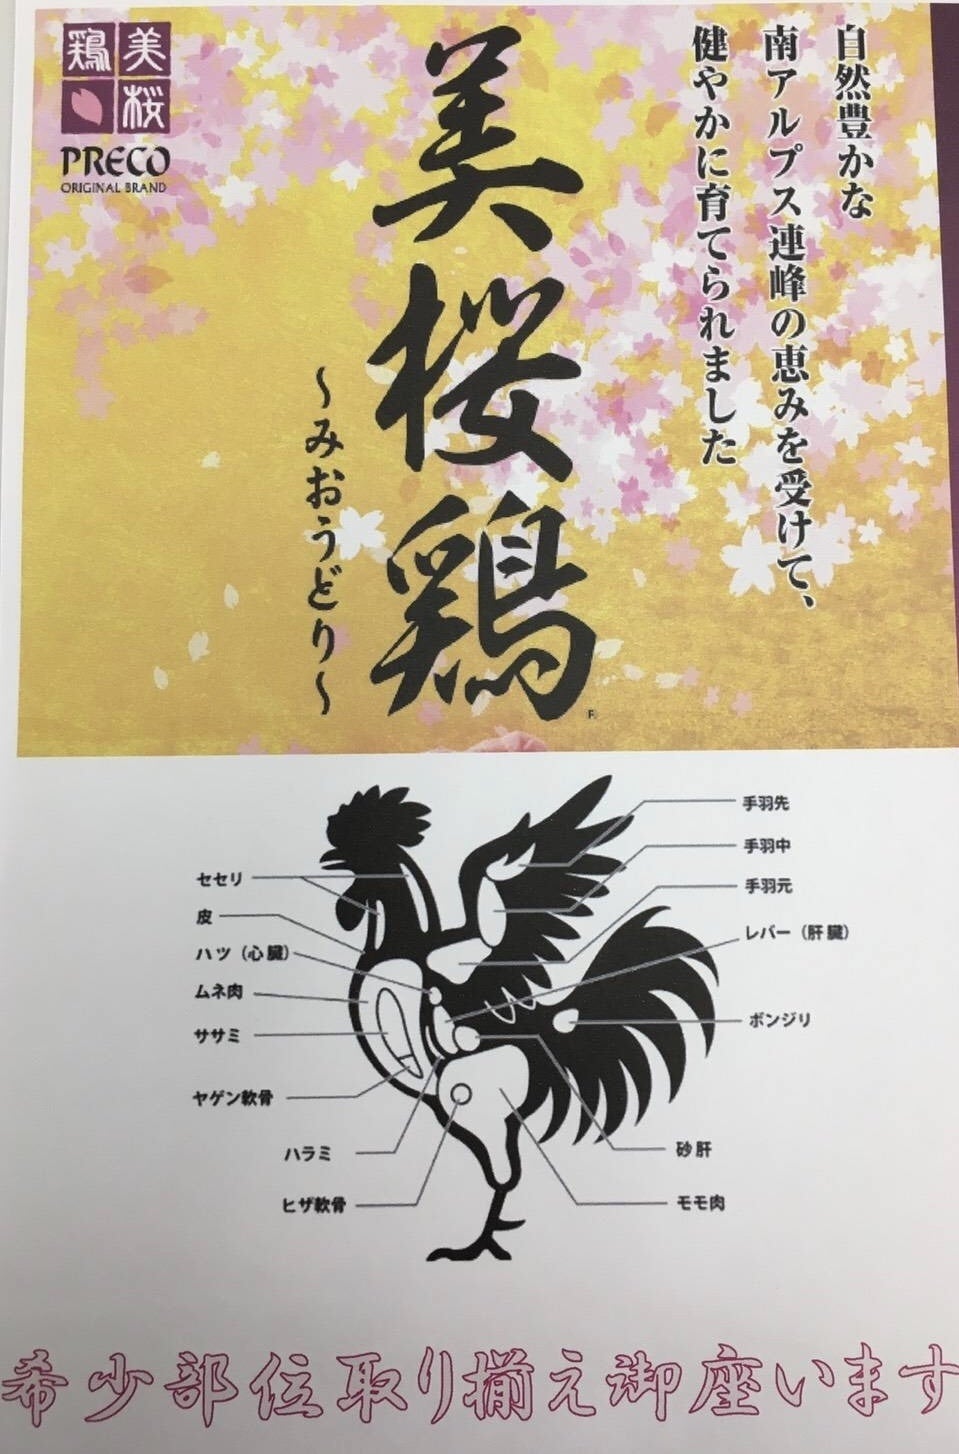 美桜鶏
PRECO
ORIGINAL BRAND
自然豊かな
南アルプス連峰の恵みを受けて、
健やかに育てられました
美桜鶏
～みおうどり～
手羽先
手羽中
手羽元
レバー（肝臓）
ボンジリ
砂肝
モモ肉
セセリ
皮
ハツ（心臓）
ムネ肉
ササミ
ヤゲン軟骨
ハラミ
ヒザ軟骨
希少部位取り揃え御座います